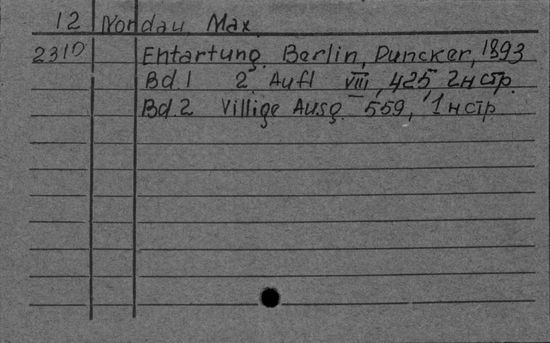 12 Nordau Max.
2310 Entartung. Berlin, Duncker, 1893
Bd.1 2. Aufl VIII, 425, 2н стр.
Bd.2 Villige Ausg. 559, 1н стр